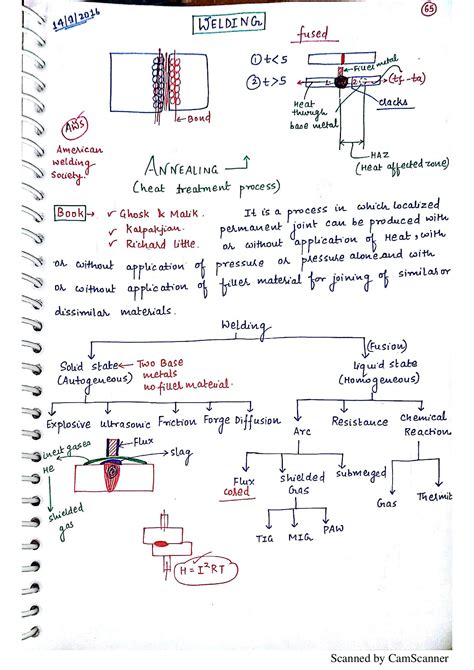 14/9/2016
65
WELDING
fused
① t<5
Filler metal
② t>5
(tf - ta)
Heat through base metal
cracks
Bond
HAZ
(Heat affected zone)
AWS
American
welding
society.
ANNEALING
(heat treatment process)
Book → ✓ Ghosk & Malik.
✓ Kalpakjian.
✓ Richard little.
It is a process in which localized
permanent joint can be produced with
or without application of Heat, with
or without application of pressure or pressure alone and with
or without application of filler material for joining of similar or
dissimilar materials.
Welding
Solid state ← Two Base
(Autogeneous) metals
no filler material.
(Fusion)
liquid state
(Homogeneous)
Explosive ultrasonic Friction Forge Diffusion
Arc Resistance Chemical
Reaction
inert gases
Flux
slag
He
shielded
gas
Flux
cored
shielded
Gas
submerged
Gas Thermit
TIG MIG PAW
H = I²RT
Scanned by CamScanner